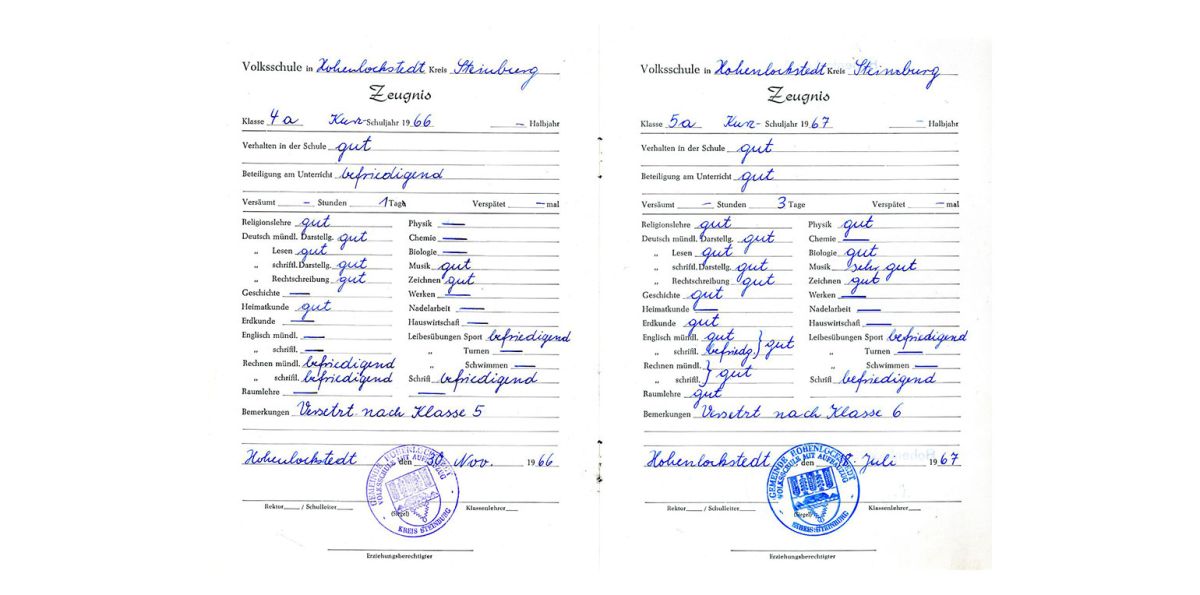 Volksschule in Hohenlockstedt Kreis Steinburg
Zeugnis
Klasse 4a Kurz-Schuljahr 1966 – Halbjahr
Verhalten in der Schule gut
Beteiligung am Unterricht befriedigend
Versäumt – Stunden 1 Tag Verspätet – mal
Religionslehre gut Physik —
Deutsch mündl. Darstellg. gut Chemie —
„ Lesen gut Biologie —
„ schriftl. Darstellg. gut Musik gut
„ Rechtschreibung gut Zeichnen gut
Geschichte — Werken —
Heimatkunde gut Nadelarbeit —
Erdkunde — Hauswirtschaft —
Englisch mündl. — Leibesübungen Sport befriedigend
„ schriftl. — „ Turnen —
Rechnen mündl. befriedigend „ Schwimmen —
„ schriftl. befriedigend Schrift befriedigend
Raumlehre — —
Bemerkungen Versetzt nach Klasse 5
Hohenlockstedt, den 30. Nov. 1966
GEMEINDE HOHENLOCKSTEDT
VOLKSSCHULE MIT AUFBAUZUG
KREIS STEINBURG
Rektor / Schulleiter (Siegel) Klassenlehrer
Erziehungsberechtigter
Volksschule in Hohenlockstedt Kreis Steinburg
Zeugnis
Klasse 5a Kurz- Schuljahr 1967 – Halbjahr
Verhalten in der Schule gut
Beteiligung am Unterricht gut
Versäumt – Stunden 3 Tage Verspätet – mal
Religionslehre gut Physik gut
Deutsch mündl. Darstellg. gut Chemie —
„ Lesen gut Biologie gut
„ schriftl. Darstellg. gut Musik sehr gut
„ Rechtschreibung gut Zeichnen gut
Geschichte gut Werken —
Heimatkunde — Nadelarbeit —
Erdkunde gut Hauswirtschaft —
Englisch mündl. gut } gut Leibesübungen Sport befriedigend
„ schriftl. befriedg. „ Turnen —
Rechnen mündl. } gut „ Schwimmen —
„ schriftl. Schrift befriedigend
Raumlehre gut
Bemerkungen Versetzt nach Klasse 6
Hohenlockstedt, den Juli 1967
GEMEINDE HOHENLOCKSTEDT
VOLKSSCHULE MIT AUFBAUZUG
KREIS STEINBURG
Rektor / Schulleiter (Siegel) Klassenlehrer
Erziehungsberechtigter